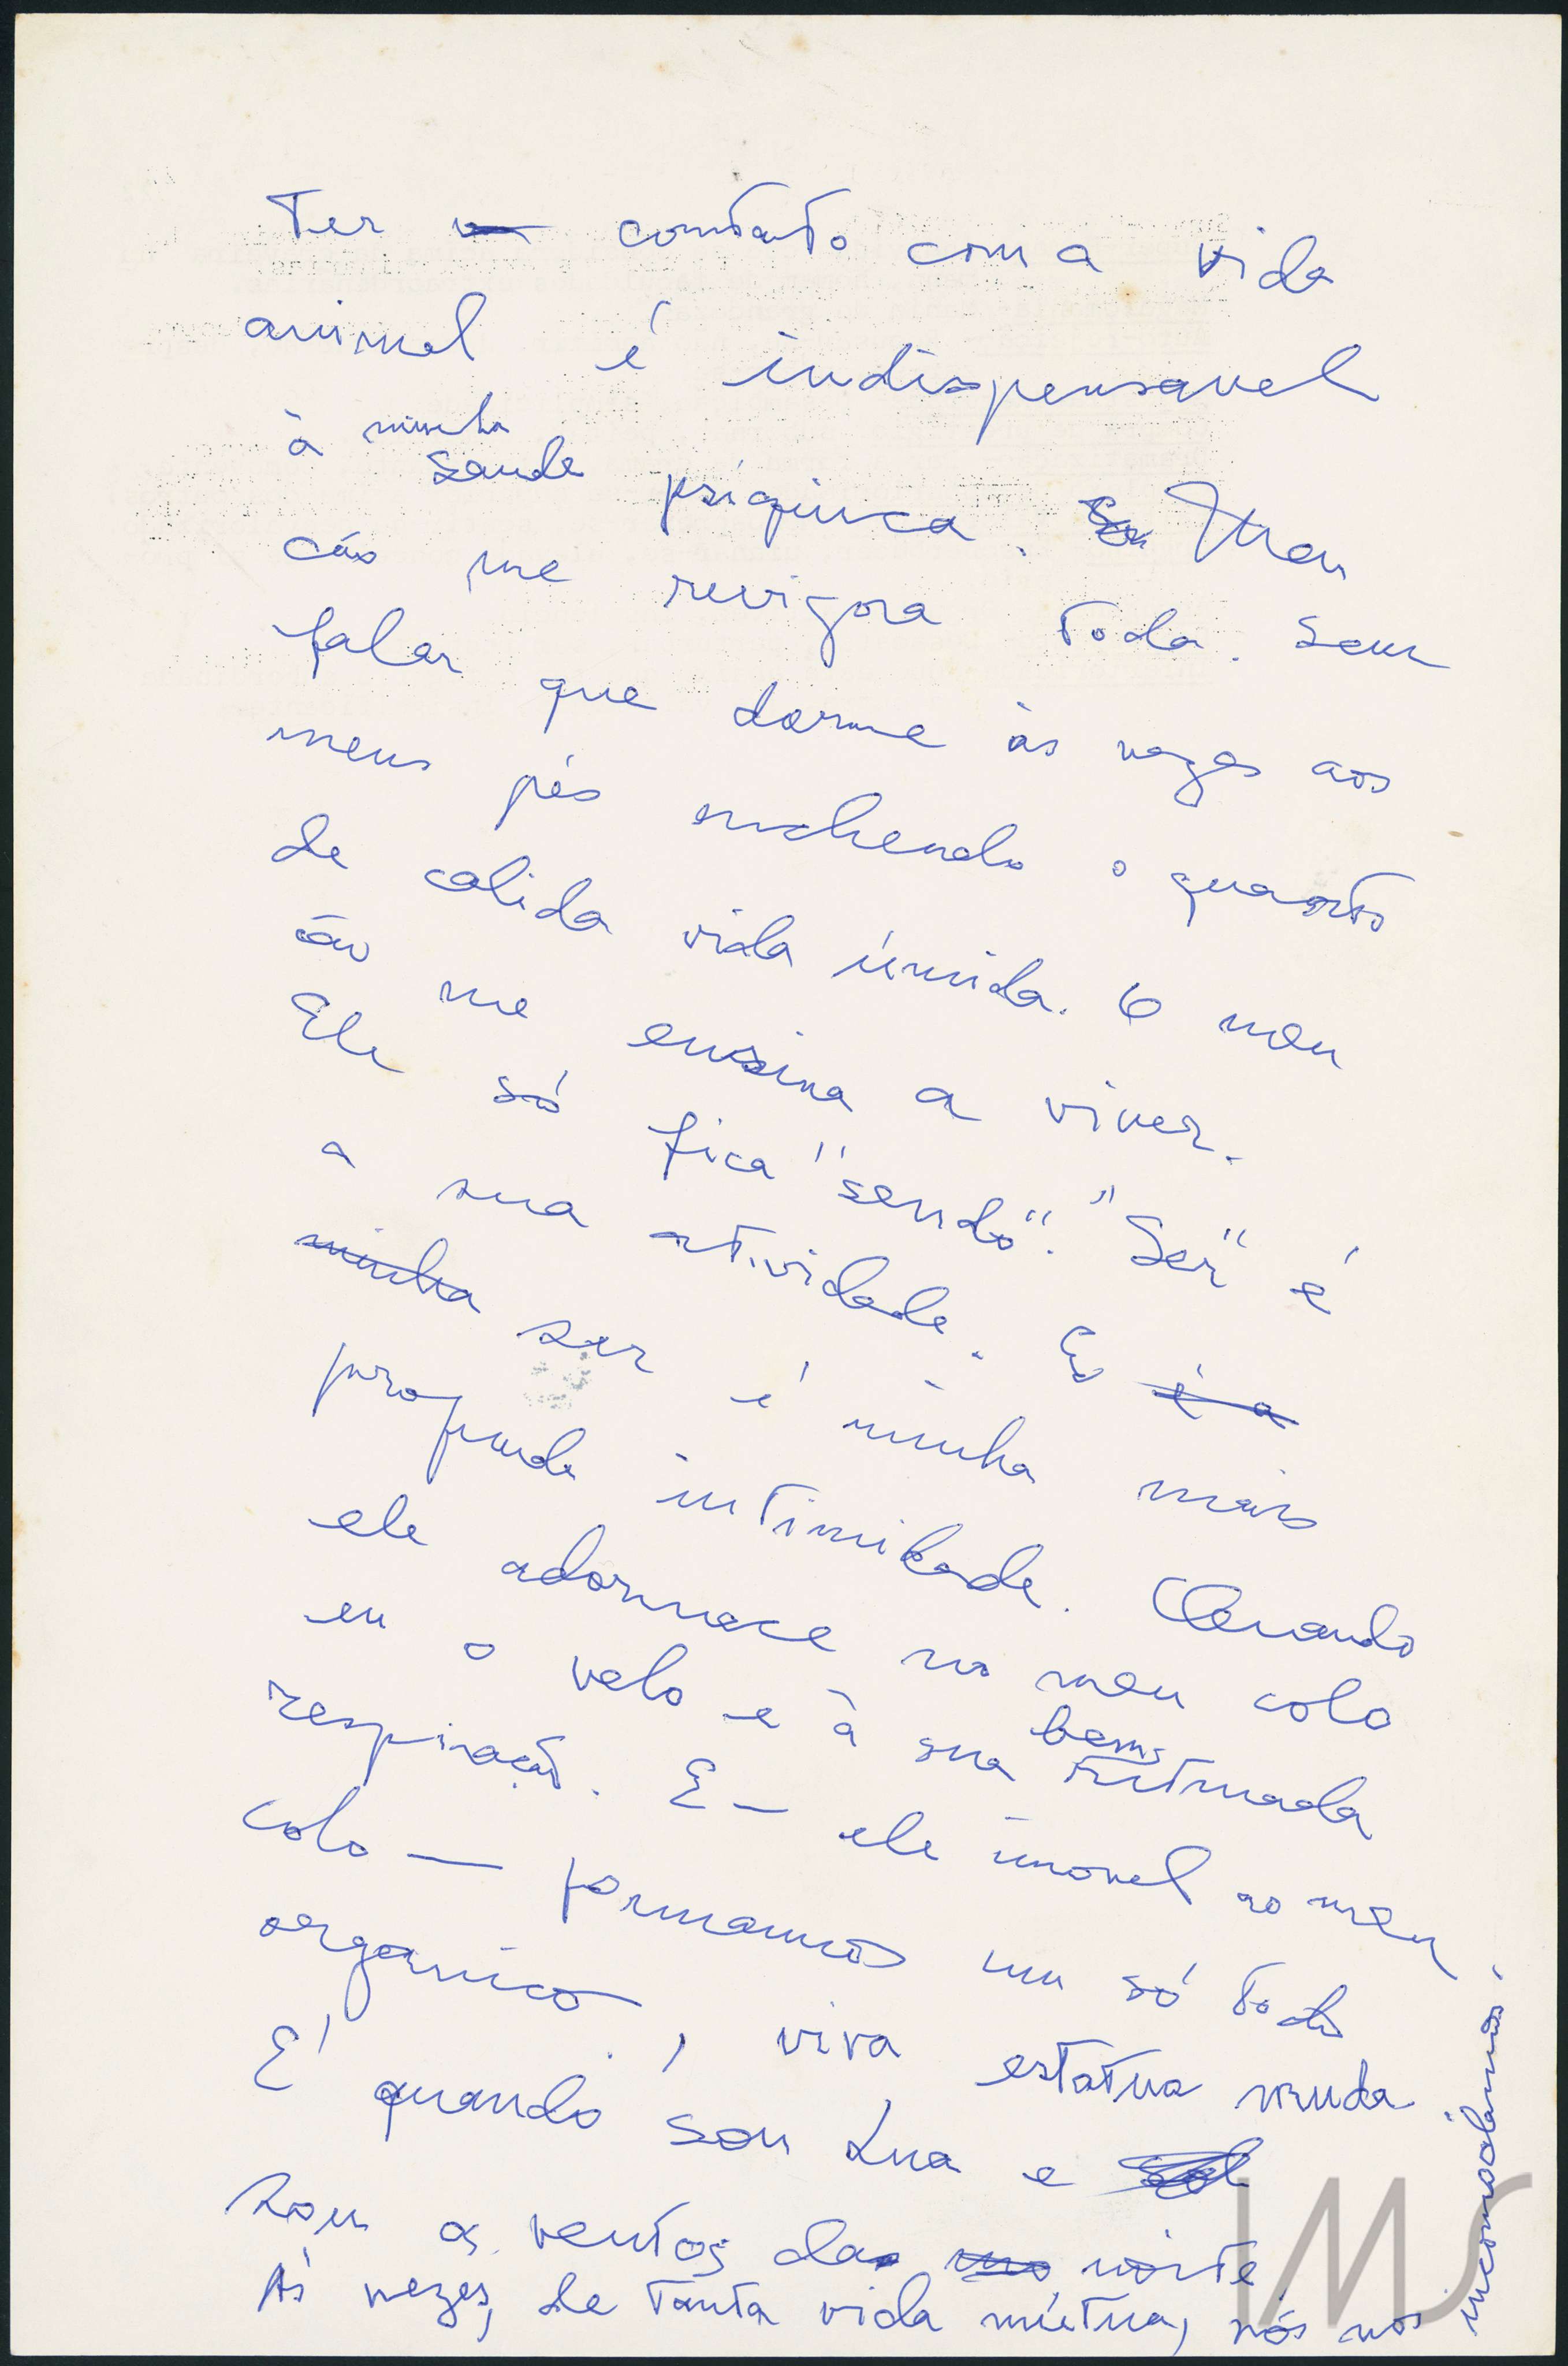 Ter contato com a vida
animal é indispensavel
à minha saude psíquica. Meu
cão me revigora toda. Sem
falar que dorme às vezes aos
meus pés enchendo o quarto
de calida vida úmida. O meu
cão me ensina a viver.
Ele só fica "sendo". "Ser" é
a sua atividade. E é a
minha ser é minha mais
profunda intimidade. Quando
ele adormece no meu colo
eu o velo e à sua bem ritmada
respiração. E — ele imovel no meu
colo — formamos um só todo
organico, viva estatua muda.
É quando sou Lua e sol
sou os ventos da noite.
Às vezes, de tanta vida mútua, nós nos
incomodamos.
IMS